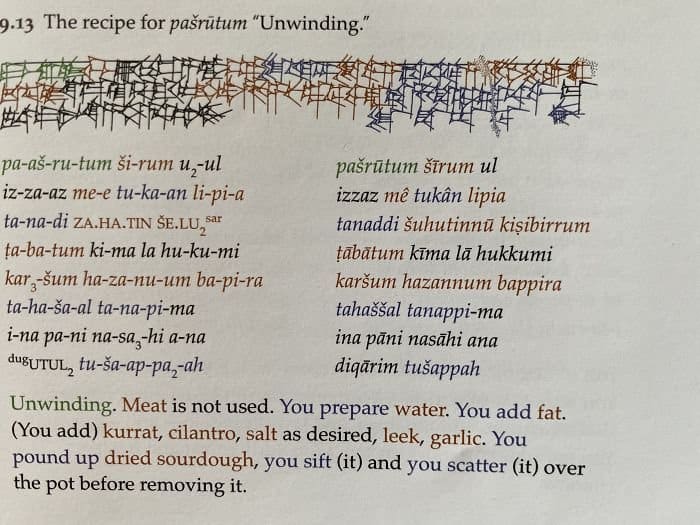 9.13 The recipe for pašrūtum “Unwinding.”
pa-aš-ru-tum ši-rum u₂-ul
iz-za-az me-e tu-ka-an li-pi-a
ta-na-di ZA.HA.TIN ŠE.LU₂ˢᵃʳ
ṭa-ba-tum ki-ma la hu-ku-mi
kar₃-šum ha-za-nu-um ba-pi-ra
ta-ha-ša-al ta-na-pi-ma
i-na pa-ni na-sa₃-hi a-na
ᵈᵘᵍUTUL₂ tu-ša-ap-pa₂-ah
pašrūtum šīrum ul
izzaz mê tukân lipia
tanaddi šuhutinnū kiṣibirrum
ṭābātum kīma lā hukkumi
karšum hazannum bappira
tahaššal tanappi-ma
ina pāni nasāhi ana
diqārim tušappah
Unwinding. Meat is not used. You prepare water. You add fat.
(You add) kurrat, cilantro, salt as desired, leek, garlic. You
pound up dried sourdough, you sift (it) and you scatter (it) over
the pot before removing it.